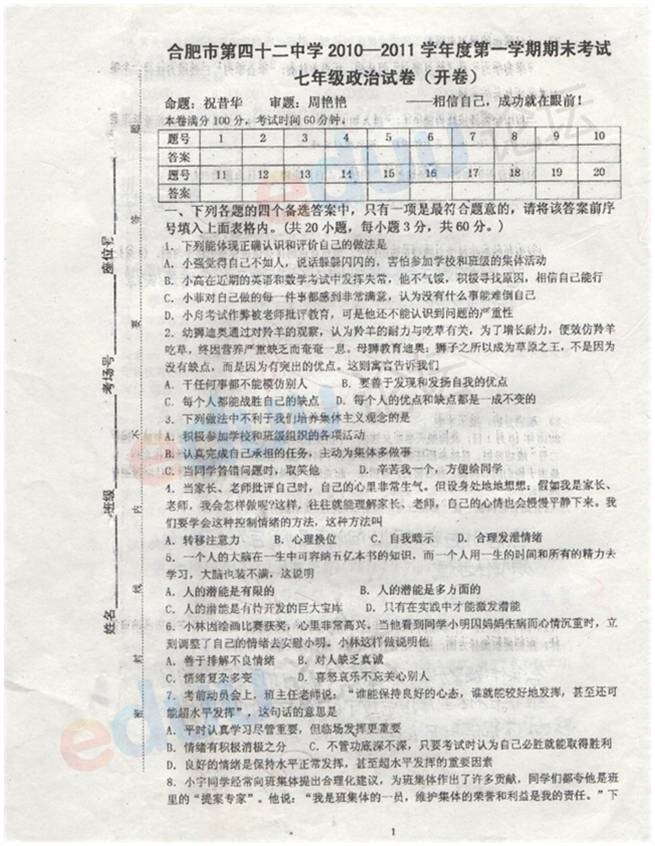 合肥市第四十二中学2010—2011学年度第一学期期末考试
七年级政治试卷（开卷）
命题：祝昔华 审题：周艳艳 ——相信自己，成功就在眼前！
本卷满分100分，考试时间60分钟。
题号 1 2 3 4 5 6 7 8 9 10
答案
题号 11 12 13 14 15 16 17 18 19 20
答案
一、下列各题的四个备选答案中，只有一项是最符合题意的，请将该答案前序
号填入上面表格内。（共20小题，每小题3分，共60分。）
1．下列能体现正确认识和评价自己的做法是
A．小强觉得自己不如人，说话躲躲闪闪的，害怕参加学校和班级的集体活动
B．小高在近期的英语和数学考试中发挥失常，他不气馁，积极寻找原因，相信自己能行
C．小菲对自己做的每一件事都感到非常满意，认为没有什么事能难倒自己
D．小舟考试作弊被老师批评教育，可是他还不能认识到问题的严重性
2．幼狮迪奥通过对羚羊的观察，认为羚羊的耐力与吃草有关，为了增长耐力，便效仿羚羊
吃草，终因营养严重缺乏而奄奄一息。母狮教育迪奥：狮子之所以成为草原之王，不是因为
没有缺点，而是因为有突出的优点。这则寓言告诉我们
A．干任何事都不能模仿别人 B．要善于发现和发扬自我的优点
C．每个人都能战胜自己的缺点 D．每个人的优点和缺点都是一成不变的
3．下列做法中不利于我们培养集体主义观念的是
A．积极参加学校和班级组织的各项活动
B．认真完成自己承担的任务，主动为集体多做事
C．当同学答错问题时，取笑他 D．辛苦我一个，方便给同学
4．当家长、老师批评自己时，自己的心里非常生气。但设身处地地想想：假如我是家长、
老师，我会怎样做呢?这样，往往就能理解家长、老师，自己的心情也会慢慢平静下来。我
们要学会这种控制情绪的方法，这种方法叫
A．转移注意力 B．心理换位 C．自我暗示 D．合理发泄情绪
5．一个人的大脑在一生中可容纳五亿本书的知识，而一个人用一生的时间和所有的精力去
学习，大脑也装不满，这说明
A．人的潜能是有限的 B．人的潜能是多方面的
C．人的潜能是有待开发的巨大宝库 D．只有在实践中才能激发潜能
6．小林因绘画比赛获奖，心里非常高兴。当他看到同学小明因妈妈生病而心情沉重时，立
刻调整了自己的情绪去安慰小明。小林这样做说明他
A．善于排解不良情绪 B．对人缺乏真诚
C．情绪复杂多变 D．喜怒哀乐不忘关心别人
7．考前动员会上，班主任老师说：“谁能保持良好的心态，谁就能较好地发挥，甚至还可
能超水平发挥”，这句话的意思是
A．平时认真学习尽管重要，但临场发挥更重要
B．情绪有积极消极之分 C．不管功底深不深，只要考试时认为自己必胜就能取得胜利
D．良好的情绪是保持水平正常发挥，甚至超水平发挥的重要因素
8．小宇同学经常向班集体提出合理化建议，为班集体作出了许多贡献，同学们都夸他是班
里的“提案专家”。他说：“我是班集体的一员，维护集体的荣誉和利益是我的责任。”下
1
姓名 班级 考场号 座位号
密 封 线 内 不 要 答 题
eduu
论坛